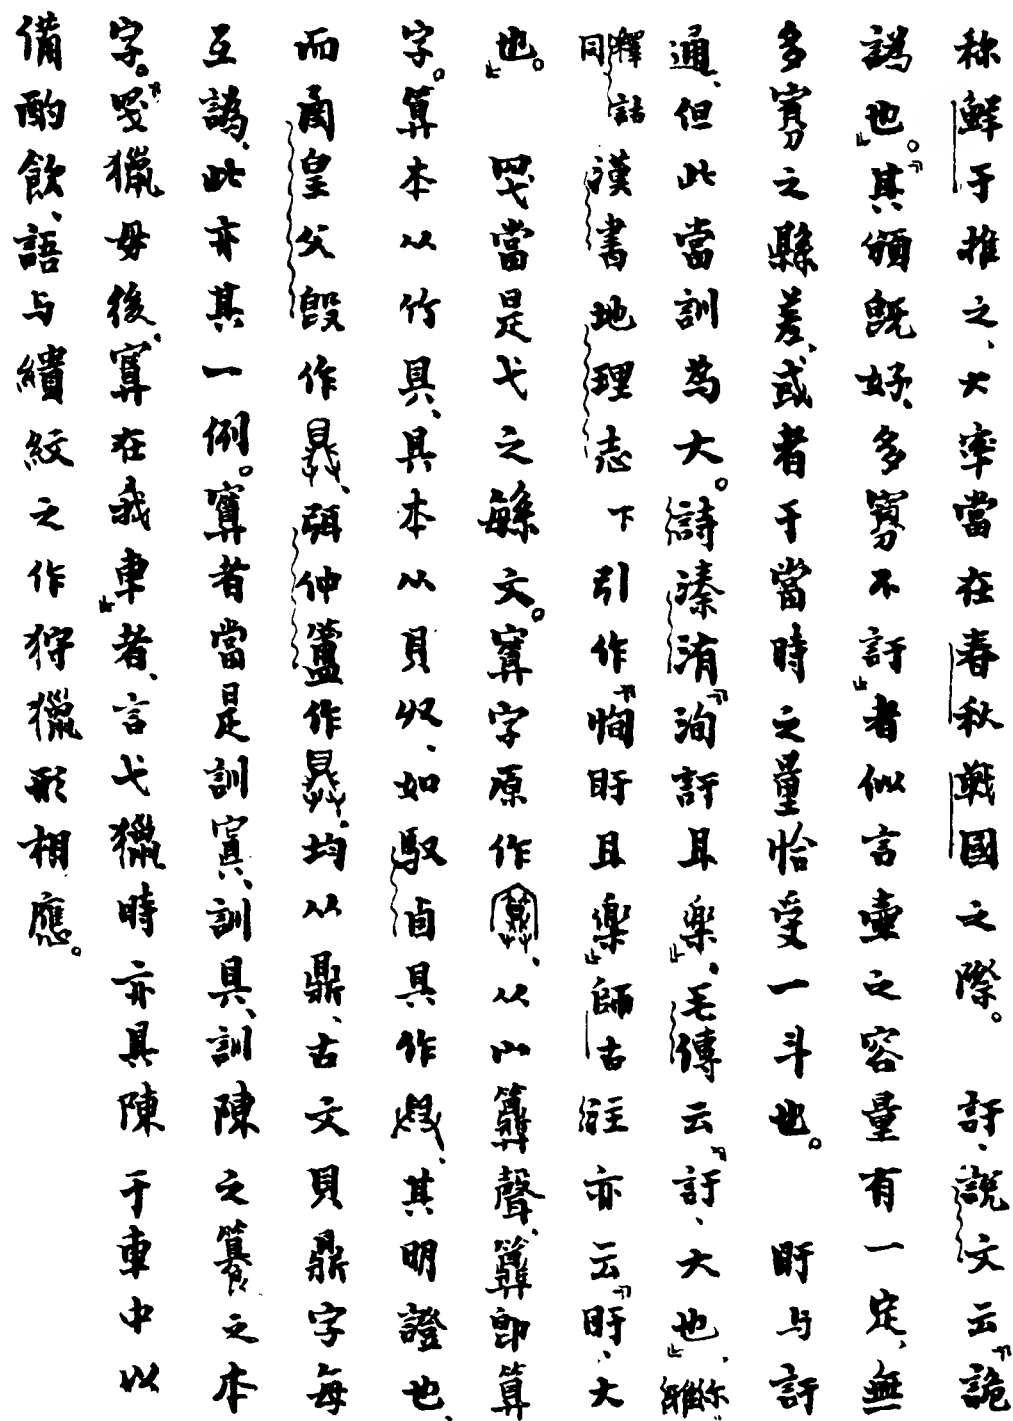 称鮮于推之、大率當在春秋戰國之際。　訏、說文云「詭
譌也。」「其頒旣好、多寡不訏」者似言壷之容量有一定、無
多寡之縣差、或者于當時之量恰受一斗也。　盱与訏
通、但此當訓為大。詩溱洧「洵訏且楽」、毛傳云「訏、大也」、尓雅
釋詁同　漢書地理志下引作「恂盱且楽」師古注亦云「盱、大
也」。　䍖當是弋之緐文。字原作、从宀聲、即算
字。算本从竹具、具本从貝収、如馭卣具作、其明證也、
而圅皇父𣪘作、弭仲簠作、均从鼎、古文貝鼎字每
互譌、此亦其一例。者當是訓、訓具、訓陳之籑之本
字。「䍖獵毋後、在我車」者、言弋獵時亦具陳于車中以
備酌飲、語与繢紋之作狩獵形相應。